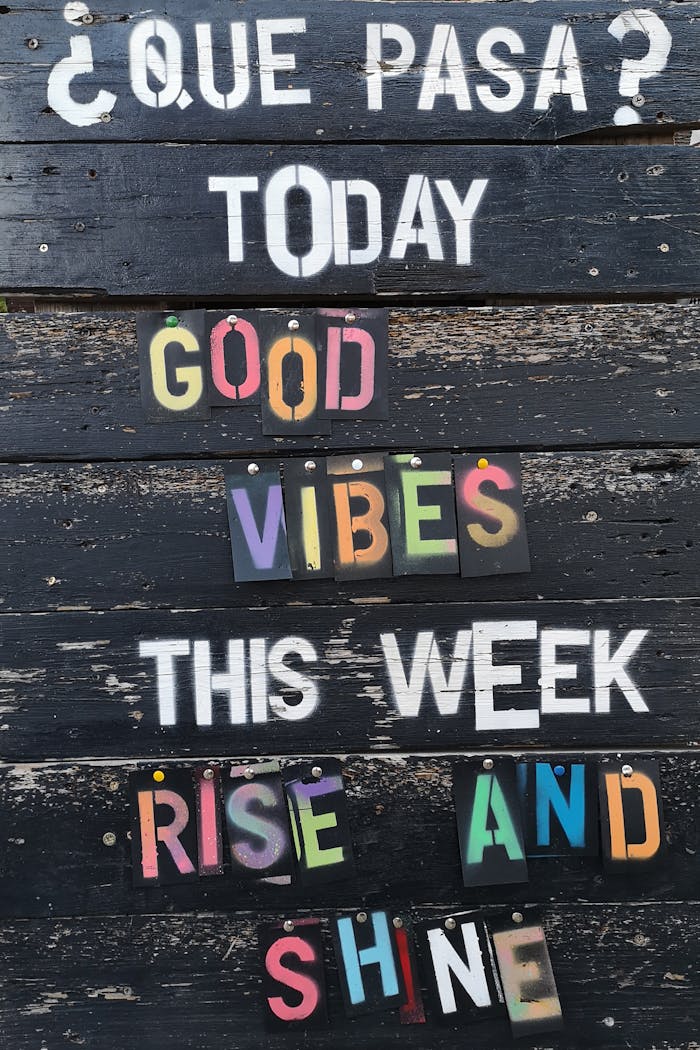 ¿QUE PASA?
TODAY
GOOD
VIBES
THIS WEEK
RISE AND
SHINE